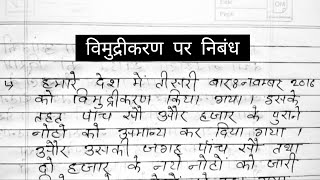 विमुद्रीकरण पर निबंध
हमारे देश में तीसरी बार 8 नवम्बर 2016
को विमुद्रीकरण किया गया । इसके
तहत पांच सौ और हजार के पुराने
नोटों को अमान्य कर दिया गया ।
और उसकी जगह पांच सौ तथा
दो हजार के नये नोटों को जारी